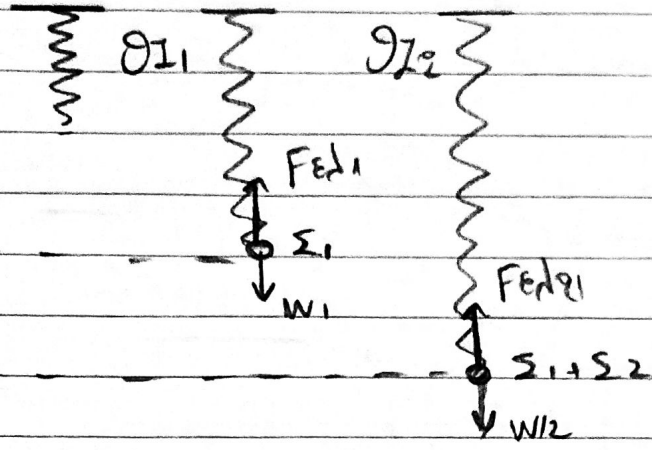 ΘΙ₁ ΘΙ₂
Fελ₁
Σ₁
w₁
Fελ₂₁
Σ₁+Σ₂
W₁₂